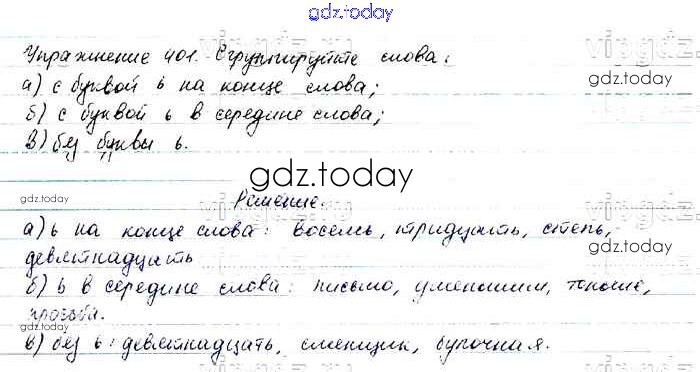 gdz.today
Упражнение 401. Сгруппируйте слова:
а) с буквой ь на конце слова;
gdz.today
б) с буквой ь в середине слова;
в) без буквы ь.
gdz.today
gdz.today
Решение.
а) ь на конце слова: восемь, тридцать, степь,
gdz.today
девятнадцать
б) ь в середине слова: письмо, уменьшим, тоньше,
просьба.
в) без ь: девятнадцать, сменщик, булочная.
gdz.today